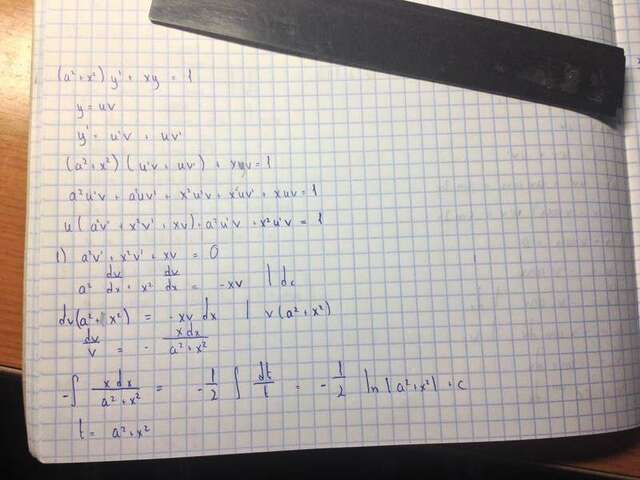 (a² + x²) y' + xy = 1
y = uv
y' = u'v + uv'
(a² + x²) (u'v + uv') + xuv = 1
a²u'v + a²uv' + x²u'v + x²uv' + xuv = 1
u(a²v' + x²v' + xv) + a²u'v + x²u'v = 1
1) a²v' + x²v' + xv = 0
a² dv/dx + x² dv/dx = -xv | dx
dv(a² + x²) = -xv dx | v(a² + x²)
dv/v = - x dx/(a² + x²)
-∫ x dx/(a² + x²) = -1/2 ∫ dt/t = -1/2 ln|a² + x²| + c
t = a² + x²